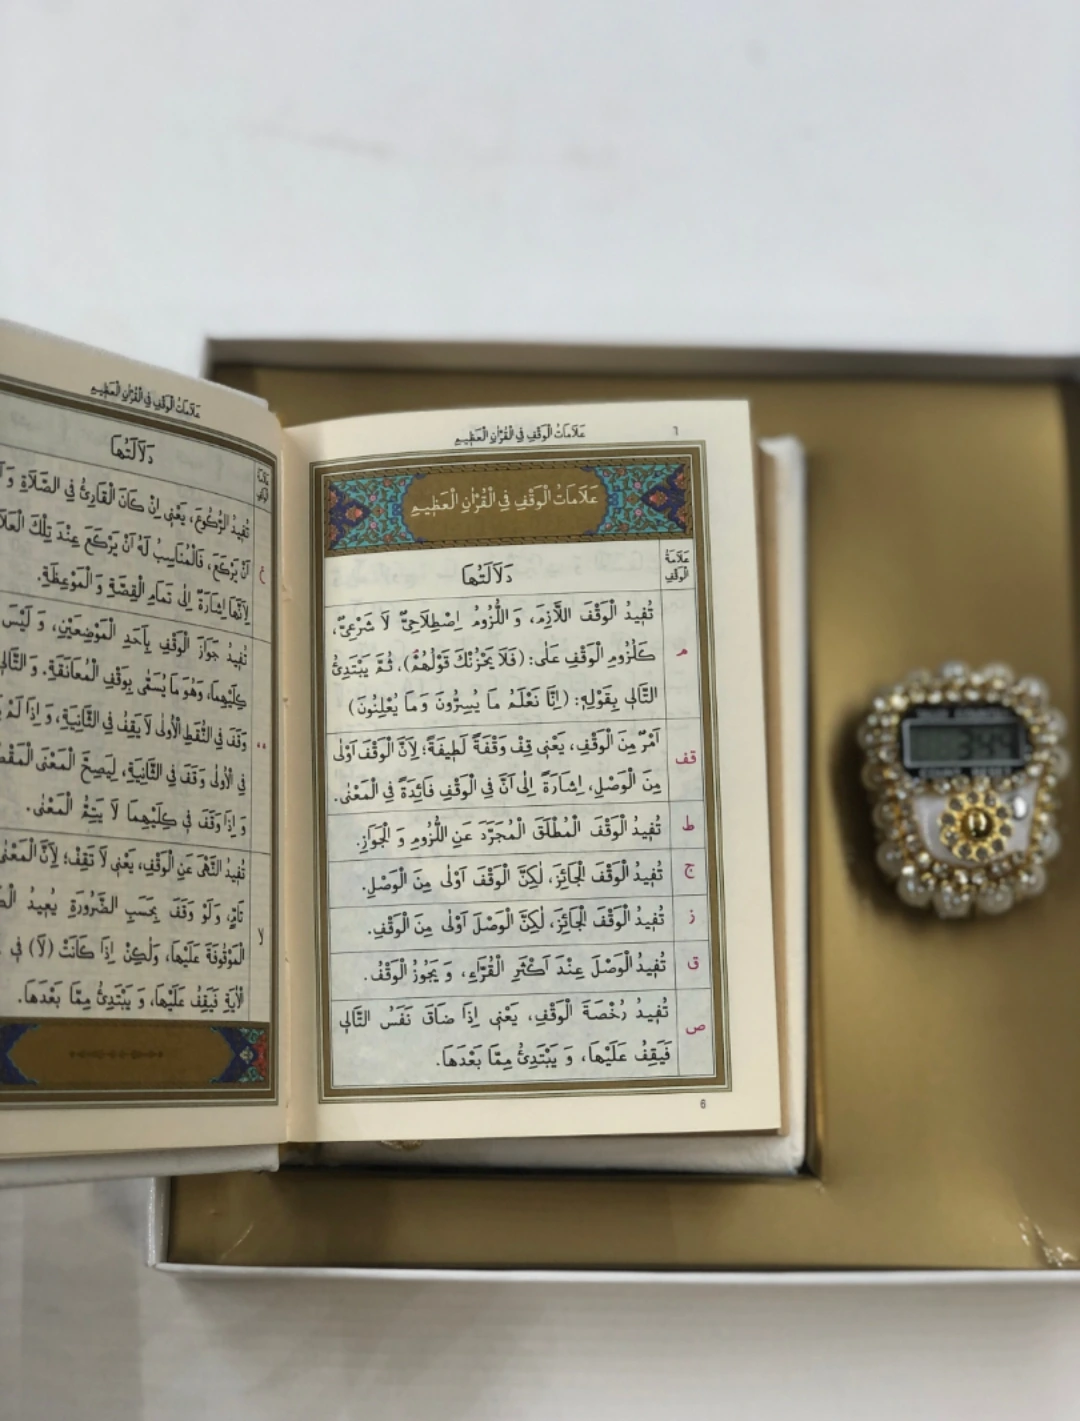 علامات الوقف في القرآن العظيم ٦
عَلَامَاتُ الْوَقْفِ فِي الْقُرْاٰنِ الْعَظٖيمِ
عَلَامَةُ الْوَقْفِ
دَلَالَتُهَا
م
تُفٖيدُ الْوَقْفَ اللَّازِمَ، وَ اللُّزُومُ اِصْطِلَاحِيٌّ لَا شَرْعِيٌّ،
كَلُزُومِ الْوَقْفِ عَلٰى: (فَلَا يَحْزُنْكَ قَوْلُهُمْۢ)، ثُمَّ يَبْتَدِئُ
التَّالٖي بِقَوْلِهٖ: (اِنَّا نَعْلَمُ مَا يُسِرُّونَ وَمَا يُعْلِنُونَ)
قف
اَمْرٌ مِنَ الْوَقْفِ، يَعْنٖي قِفْ وَقْفَةً لَطٖيفَةً؛ لِاَنَّ الْوَقْفَ اَوْلٰى
مِنَ الْوَصْلِ، اِشَارَةً اِلٰى اَنَّ فِي الْوَقْفِ فَائِدَةً فِي الْمَعْنٰى.
ط
تُفٖيدُ الْوَقْفَ الْمُطْلَقَ الْمُجَرَّدَ عَنِ اللُّزُومِ وَ الْجَوَازِ.
ج
تُفٖيدُ الْوَقْفَ الْجَائِزَ، لٰكِنَّ الْوَقْفَ اَوْلٰى مِنَ الْوَصْلِ.
ز
تُفٖيدُ الْوَقْفَ الْجَائِزَ، لٰكِنَّ الْوَصْلَ اَوْلٰى مِنَ الْوَقْفِ.
ق
تُفٖيدُ الْوَصْلَ عِنْدَ اَكْثَرِ الْقُرَّاءِ، وَ يَجُوزُ الْوَقْفُ.
ص
تُفٖيدُ رُخْصَةَ الْوَقْفِ، يَعْنٖي اِذَا ضَاقَ نَفَسُ التَّالٖي
فَيَقِفُ عَلَيْهَا، وَ يَبْتَدِئُ مِمَّا بَعْدَهَا.
6
علامات الوقف في القرآن العظيم
دَلَالَتُهَا
ع
تُفٖيدُ الرُّكُوعَ، يَعْنٖي اِنْ كَانَ الْقَارِئُ فِي الصَّلَاةِ
اَنْ يَرْكَعَ، فَالْمُنَاسِبُ لَهُ اَنْ يَرْكَعَ عِنْدَ تِلْكَ
لِاَنَّهَا اِشَارَةٌ اِلٰى تَمَامِ الْقِصَّةِ وَ الْمَوْعِظَةِ.
تُفٖيدُ جَوَازَ الْوَقْفِ بِاَحَدِ الْمَوْضِعَيْنِ، وَ لَيْسَ
كِلَيْهِمَا، وَهُوَ مَا يُسَمّٰى بِوَقْفِ الْمُعَانَقَةِ.
وَقَفَ فِي النُّقَطِ الْاُولٰى لَا يَقِفُ فِي الثَّانِيَةِ، وَ اِذَا لَمْ
فِي الْاُولٰى وَقَفَ فِي الثَّانِيَةِ، لِيَصِحَّ الْمَعْنَى
وَ اِذَا وَقَفَ فٖي كِلَيْهِمَا لَا يَتِمُّ الْمَعْنٰى.
لا
تُفٖيدُ النَّهْيَ عَنِ الْوَقْفِ، يَعْنٖي لَا تَقِفْ؛ لِاَنَّ الْمَعْنٰى
تَامٍّ، وَلَوْ وَقَفَ بِحَسَبِ الضَّرُورَةِ يُعٖيدُ
الْمَوْقُوفَةَ عَلَيْهَا، وَلٰكِنْ اِذَا كَانَتْ (لَا) فٖي
الْاٰيَةِ فَيَقِفُ عَلَيْهَا، وَ يَبْتَدِئُ مِمَّا بَعْدَهَا.
344